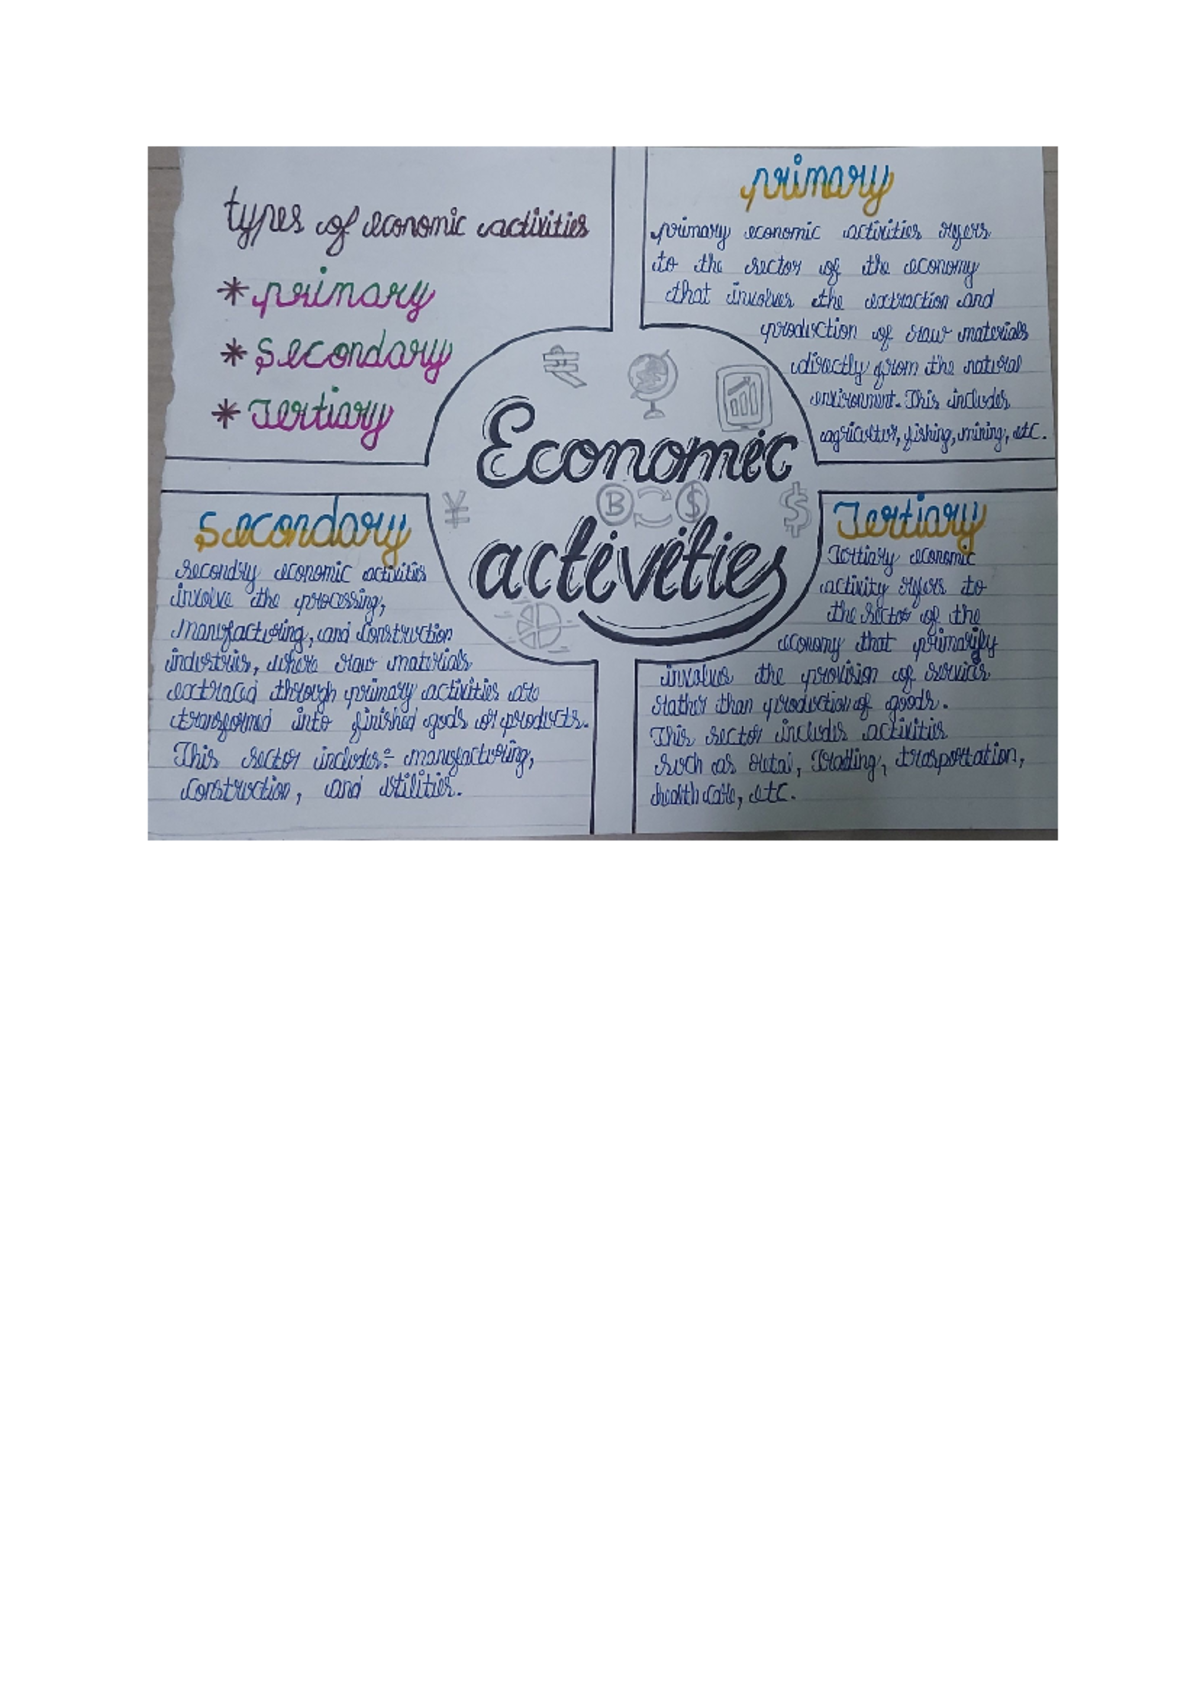 types of economic activities
* primary
* Secondary
* Tertiary
primary
primary economic activities refers
to the sector of the economy
that involves the extraction and
production of raw materials
directly from the natural
environment. This includes
agricultur, fishing, mining, etc.
Economic
activities
₹
¥
B
$
$
Secondary
secondry economic activities
involve the processing,
manufacturing, and construction
industries, where raw materials
extraced through primary activities are
transformed into finished goods or products.
This sector includes:- manufacturing,
construction, and utilities.
Tertiary
Tertiary economic
activity refers to
the sector of the
economy that primarily
involves the provision of services
rather than production of goods.
This sector includes activities
such as retai, Trading, trasportation,
health care, etc.